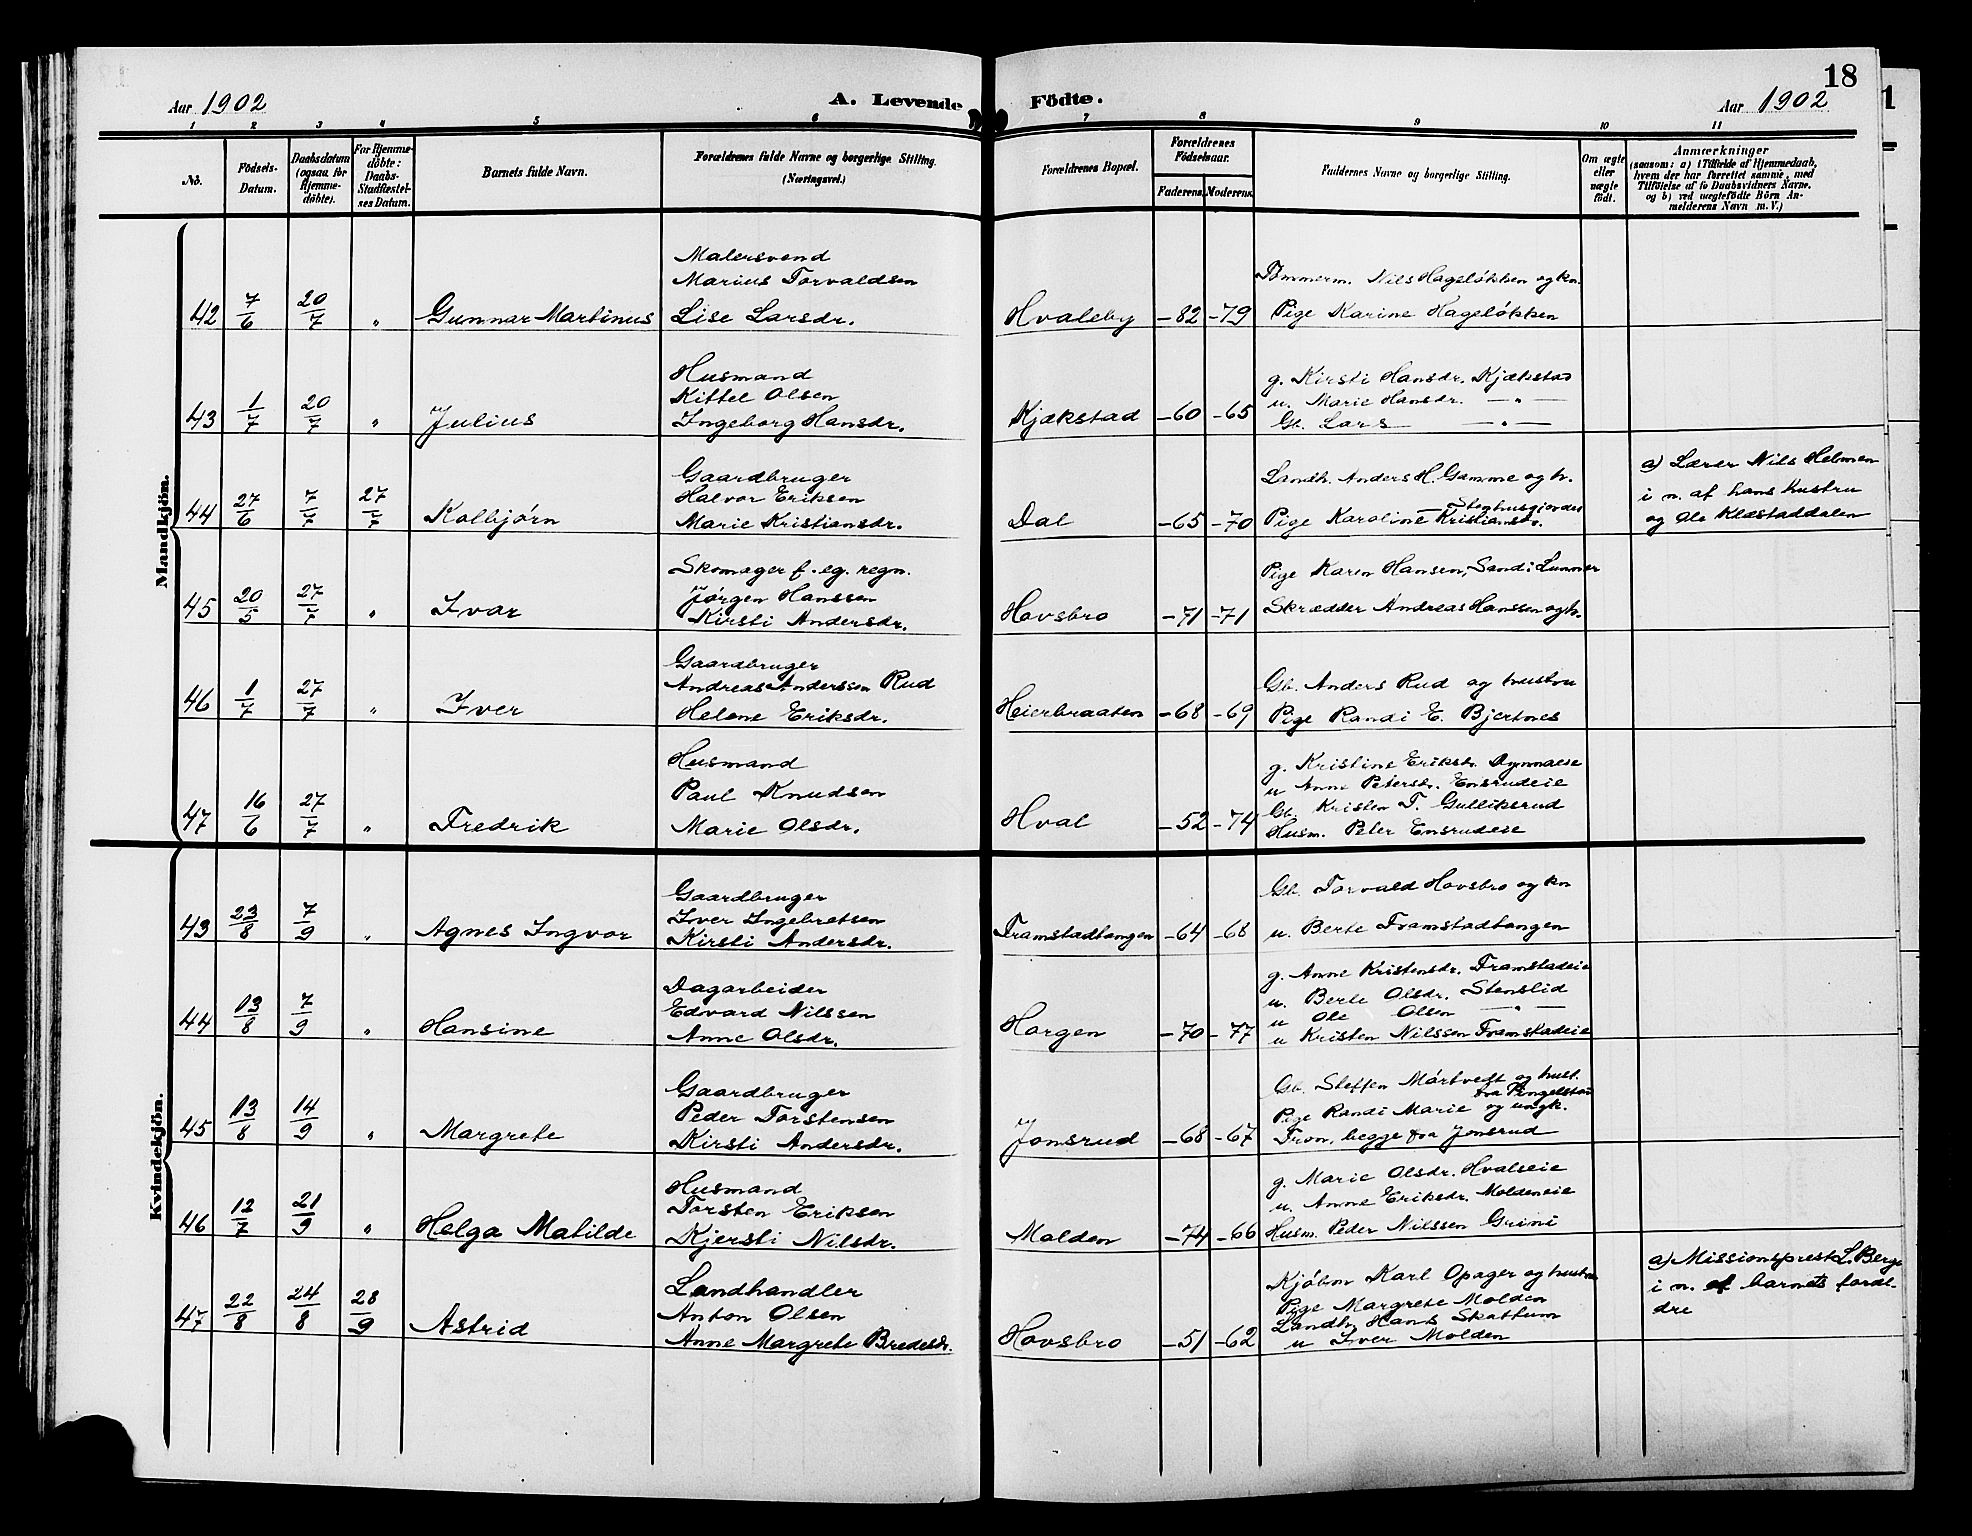 18
Aar 1902
A. Levende Födte.
Aar 1902
1 2 3 4 5 6 7 8 9 10 11
No.
Födsels-
Datum.
Daabsdatum
(ogsaa for
Hjemme-
döbte).
For Hjemme-
döbte:
Daabs-
Stadfæstel-
ses Datum.
Barnets fulde Navn.
Forældrenes fulde Navne og borgerlige Stilling.
(Næringsvei.)
Forældrenes Bopæl.
Forældrenes
Födselsaar.
Faderens. Moderens.
Faddernes Navne og borgerlige Stilling.
Om ægte
eller
uægte
födt.
Anmærkninger
(saasom: a) i Tilfælde af Hjemmedaab,
hvem der har forrettet samme, med
Tilföielse af to Daabsvidners Navne,
og b) ved uægtefödte Börn An-
melderens Navn m. V.)
Mandkjön.
Malersvend
Marius Torvaldsen
42 7/6 20/7 " Gunnar Martinus Lise Larsdr. Hvaleby -82 -79
Tømmerm. Nils Hageløkken og kn.
Pige Karine Hageløkken
Husmand
Kittel Olsen
43 1/7 20/7 " Julius Ingeborg Hansdr. Kjækstad -60 -65
g. Kirsti Hansdr. Kjækstad
u. Marie Hansdr. — " —
Gb. Lars — " —
Gaardbruger
Halvor Eriksen
44 27/6 7/7 27/7 Kolbjørn Marie Kristiansdr. Dal -65 -70
Landh. Anders H. Gamme og h.
Pige Karoline Kristiansdr.
a) Lærer Nils Helmen
i n. af hans hustru
og Ole Klæstaddalen
Skomager f. eg. regn.
Jørgen Hanssen
45 20/5 27/7 " Ivar Kirsti Andersdr. Hovsbro -71 -71
Pige Karen Hansen, Sand i Lunner
Skrædder Andreas Hanssen og h.
Gaardbruger
Andreas Anderssen Rud
46 1/7 27/7 " Iver Helene Eriksdr. Heierbraaten -68 -69
Gb. Anders Rud og hustru
Pige Randi E. Bjertnes
Husmand
Paul Knudsen
47 16/6 27/7 " Fredrik Marie Olsdr. Hval -52 -74
g. Kristine Eriksdr. Dynnaeie
u Anne Petersdr. Ensrudeie
Gb. Kristen T. Gulliksrud
Husm. Peter Ensrudeie
Kvindekjön.
Gaardbruger
Iver Ingebretsen
43 23/8 7/9 " Agnes Ingvor Kirsti Andersdr. Framstadtangen -64 -68
Gb. Torvald Hovsbro og kn
u. Berte Framstadtangen
Dagarbeider
Edvard Nilssen
44 13/8 7/9 " Hansine Anne Olsdr. Horgen -70 -77
g. Anne Kristensdr. Framstadeie
u. Berte Olsdr. Stenslid
u Ole Olsen — " —
u Kristen Nilssen Framstadeie
Gaardbruger
Peder Torstensen
45 13/8 14/9 " Margrete Kirsti Andersdr. Jonsrud -68 -67
Gb. Steffen Mørtvedt og hust.
fra Tingelstad
Pige Randi Marie og ungk.
Tron, begge fra Jonsrud
Husmand
Torsten Eriksen
46 12/7 21/9 " Helga Matilde Kjersti Nilsdr. Molden -74 -66
g. Marie Olsdr. Hvalseie
u. Anne Eriksdr. Moldeneie
Husm. Peder Nilssen Grini
Landhandler
Anton Olsen
47 22/8 24/8 28/9 Astrid Anne Margrete Bredesdr. Hovsbro -51 -62
Kjøbm Karl Opager og hustru
Pige Margrete Molden
Landh. Hans Skattum
u Iver Molden
a) Missionsprest L. Berge
i n. af barnets foræl-
dre